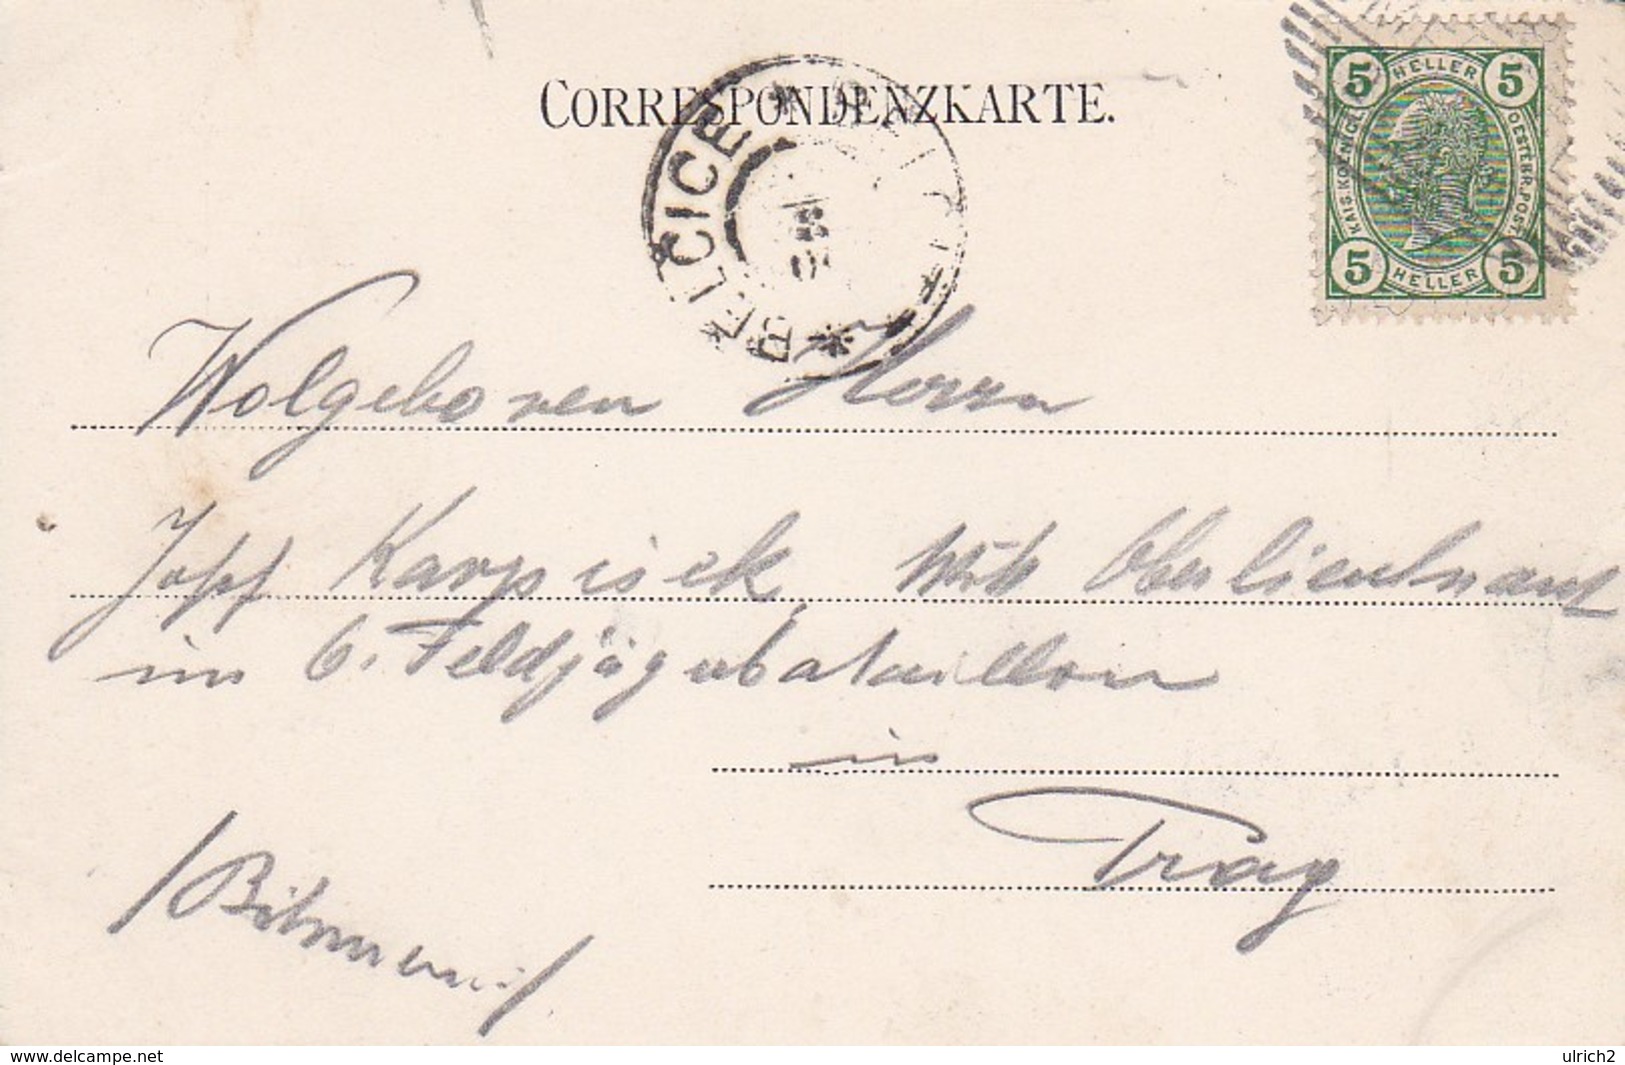 CORRESPONDENZKARTE.
BELČICE
5 HELLER 5
KAIS. KOENIGL. OESTERR. POST.
5 HELLER 5
Wolgeboren Herrn
Karpisek, Oberlieutnant
im 6. Feldjägerbataillon
in
Prag
www.delcampe.net
ulrich2